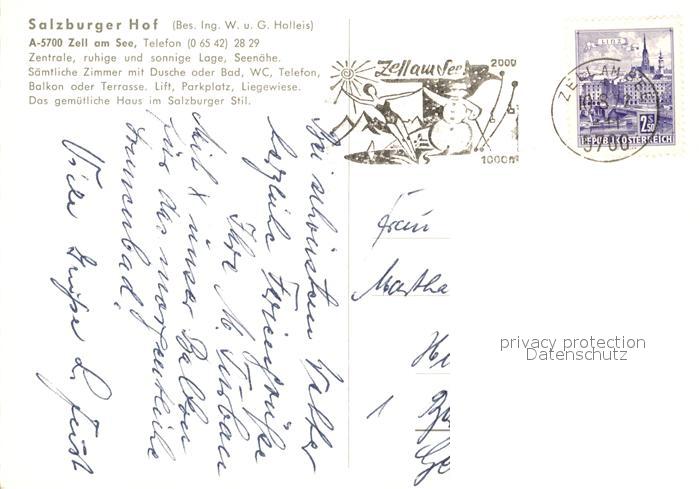 Salzburger Hof (Bes. Ing. W. u. G. Holleis)
A-5700 Zell am See, Telefon (0 65 42) 28 29
Zentrale, ruhige und sonnige Lage, Seenähe.
Sämtliche Zimmer mit Dusche oder Bad, WC, Telefon,
Balkon oder Terrasse. Lift, Parkplatz, Liegewiese.
Das gemütliche Haus im Salzburger Stil.
Zell am See
2000
1000m
LINZ
2.50
S
REPUBLIK ÖSTERREICH
ZELL AM
5700
Bei schönstem Wetter
herzliche Feriengrüße
Ihre M.
Mit x unser Balkon
für das morgendliche
Sonnenbad.
Viele Grüße L.
Frau
Martha
1
privacy protection
Datenschutz